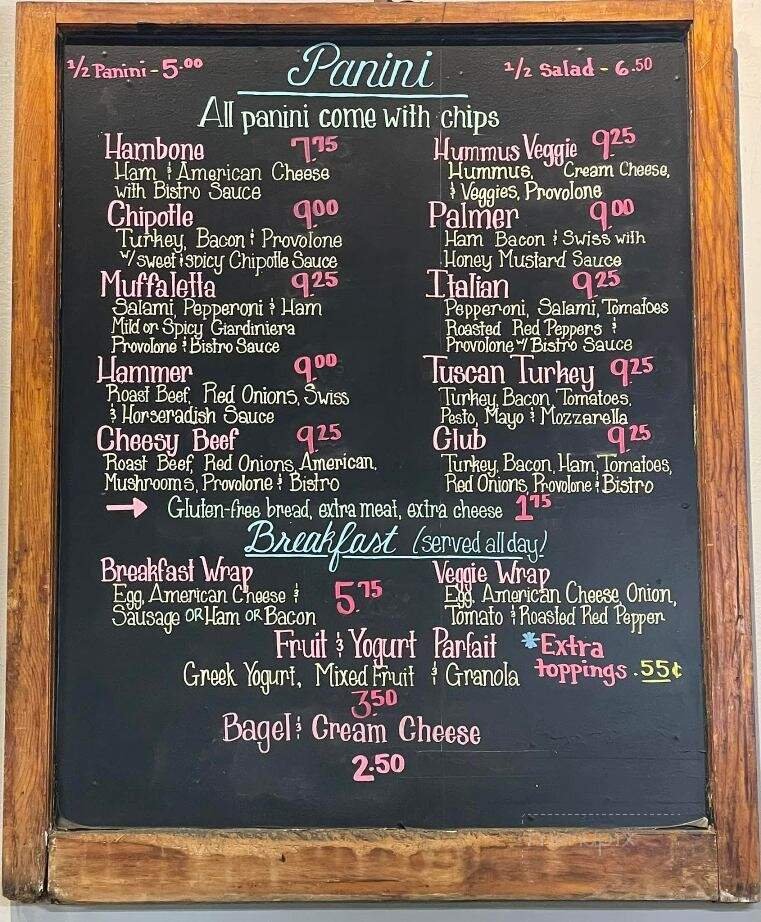 1/2 Panini - 5.00
Panini
1/2 Salad - 6.50
All panini come with chips
Hambone 7.75
Ham & American Cheese
with Bistro Sauce
Chipotle 9.00
Turkey, Bacon & Provolone
w/ sweet & spicy Chipotle Sauce
Muffaletta 9.25
Salami, Pepperoni & Ham
Mild or Spicy Giardiniera
Provolone & Bistro Sauce
Hammer 9.00
Roast Beef, Red Onions, Swiss
& Horseradish Sauce
Cheesy Beef 9.25
Roast Beef, Red Onions, American,
Mushrooms, Provolone & Bistro
Hummus Veggie 9.25
Hummus, Cream Cheese,
& Veggies, Provolone
Palmer 9.00
Ham Bacon & Swiss with
Honey Mustard Sauce
Italian 9.25
Pepperoni, Salami, Tomatoes
Roasted Red Peppers &
Provolone w/ Bistro Sauce
Tuscan Turkey 9.25
Turkey, Bacon, Tomatoes,
Pesto, Mayo & Mozzarella
Club 9.25
Turkey, Bacon, Ham, Tomatoes,
Red Onions, Provolone & Bistro
→ Gluten-free bread, extra meat, extra cheese 1.75
Breakfast (served all day!)
Breakfast Wrap
Egg, American Cheese &
Sausage OR Ham OR Bacon
5.75
Veggie Wrap
Egg, American Cheese, Onion,
Tomato & Roasted Red Pepper
Fruit & Yogurt Parfait
Greek Yogurt, Mixed Fruit & Granola
3.50
*Extra
toppings .55¢
Bagel & Cream Cheese
2.50